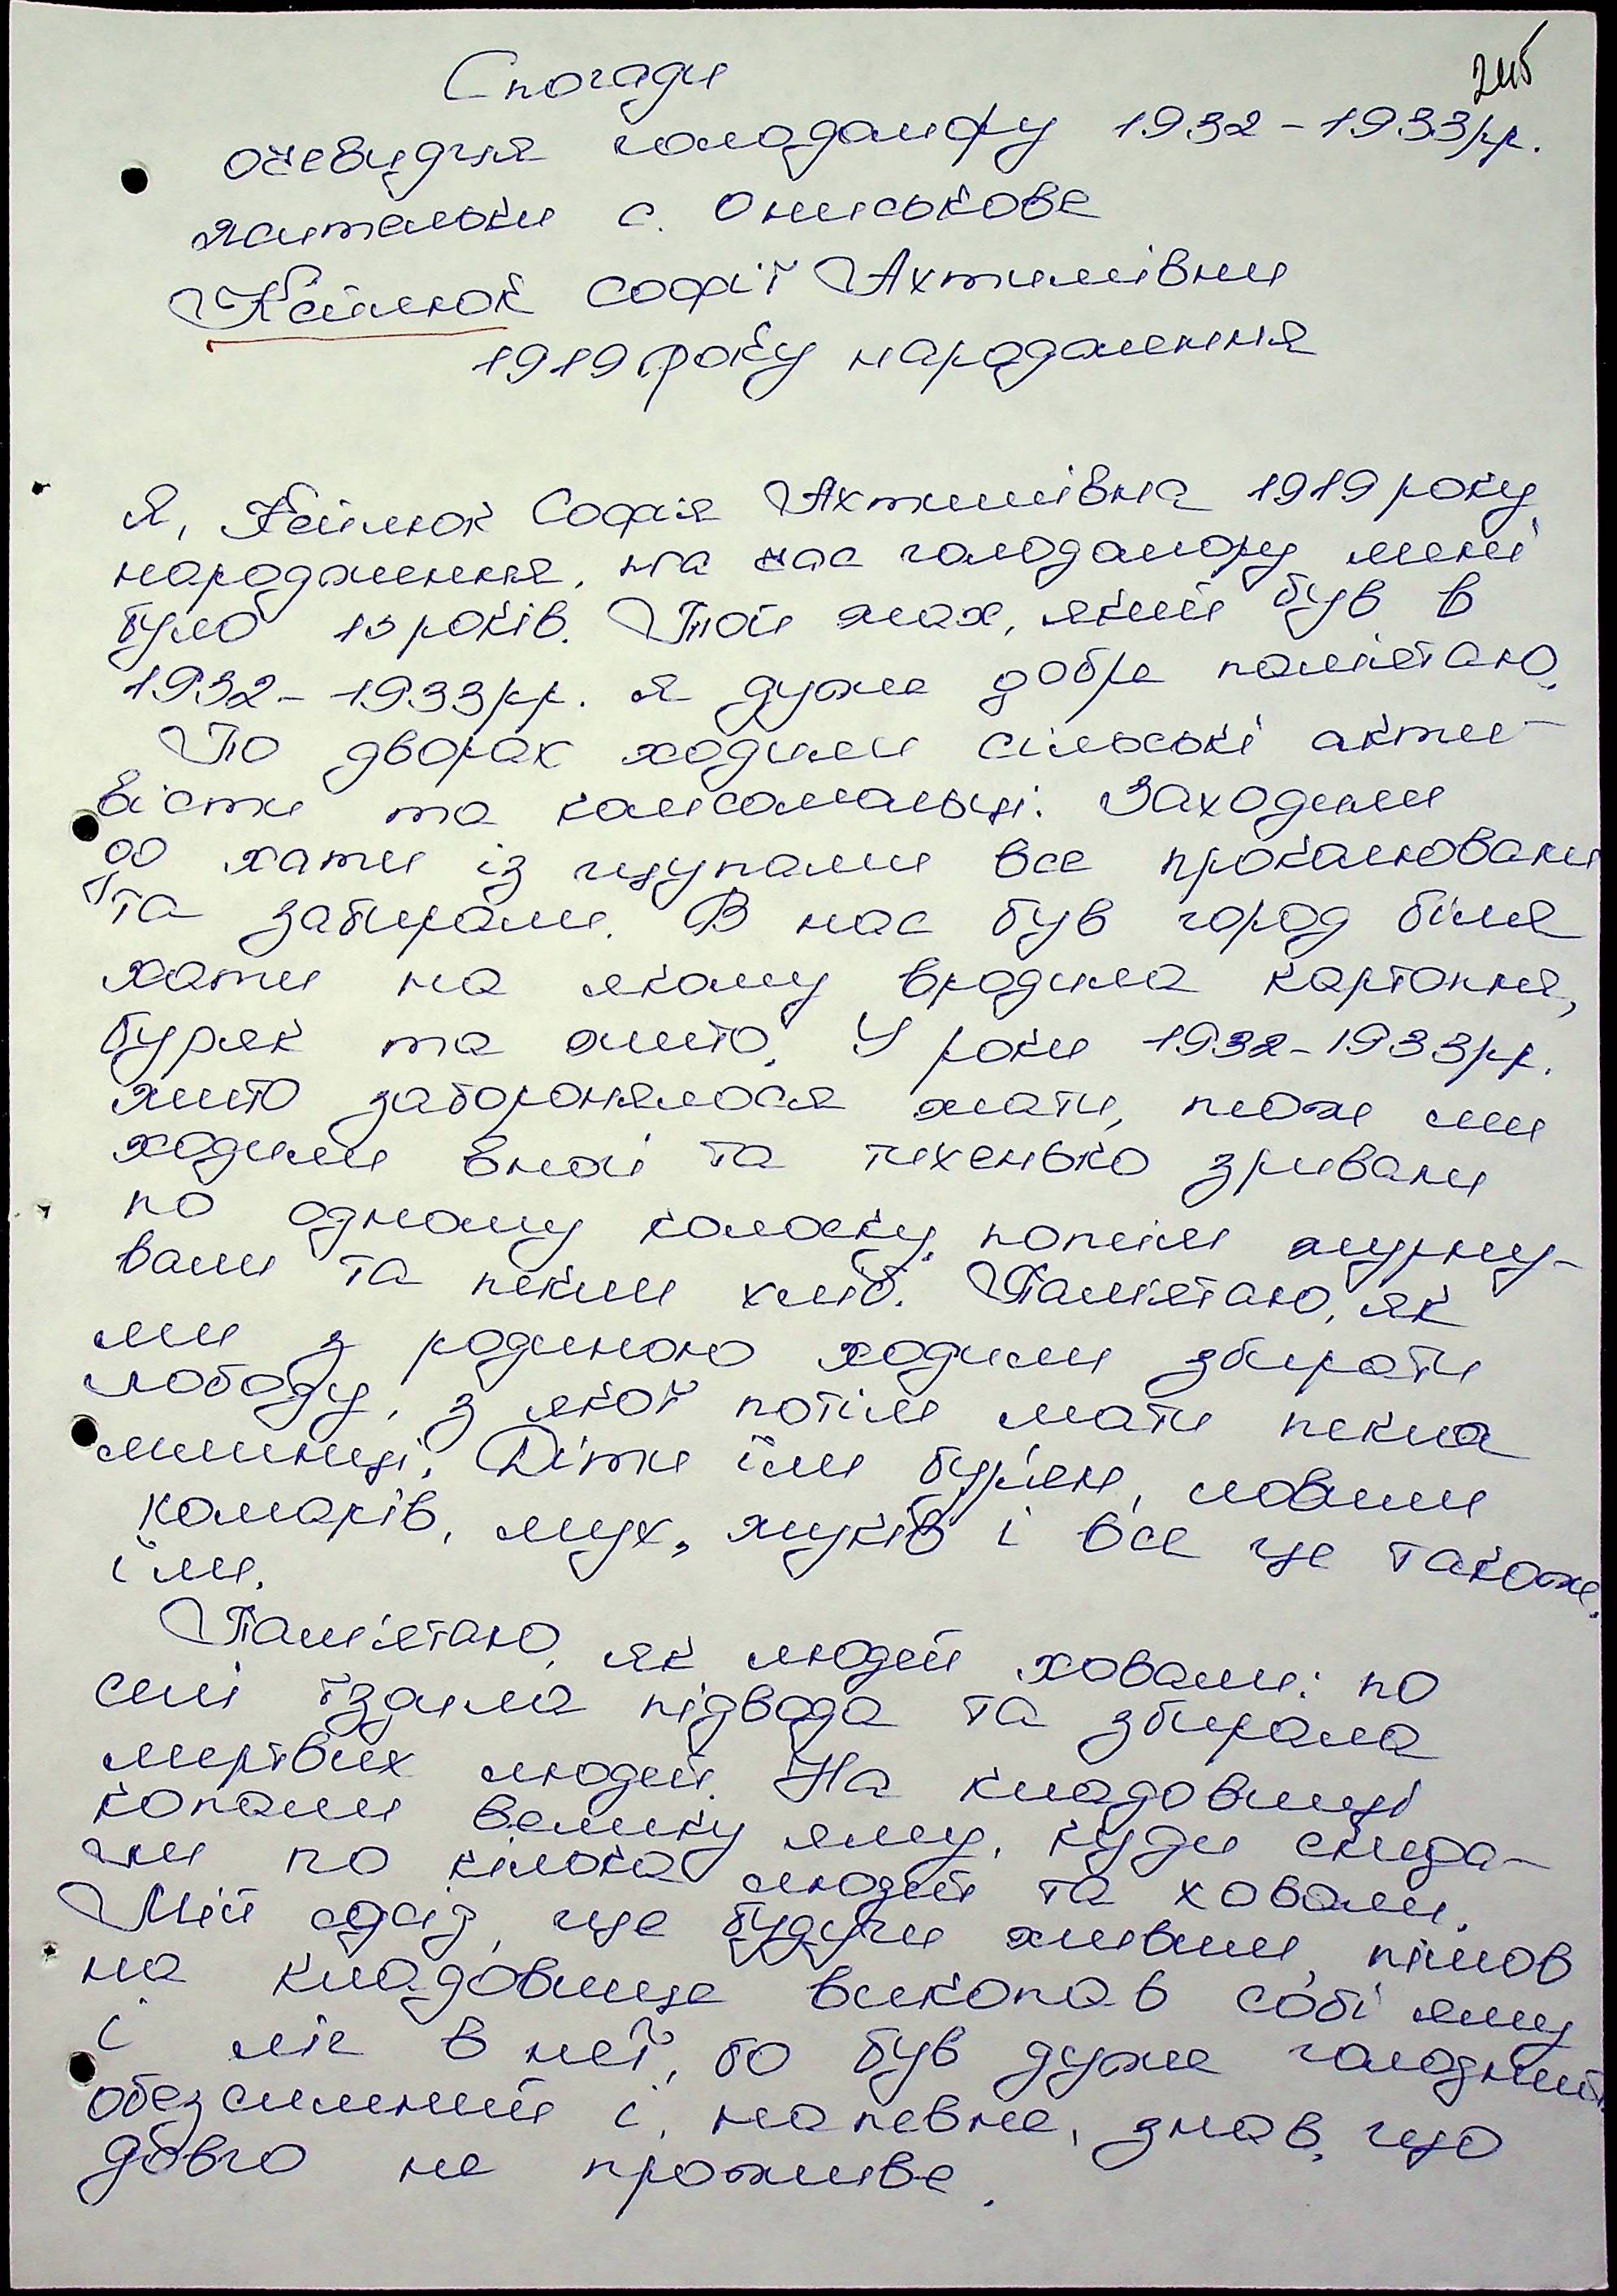 Спогади
очевидця голодомору 1932-1933рр.
жительки с. Ониськове
Софії Ахтимівни
1919 року народження
Я, Софія Ахтимівна 1919 року
народження, на час голодомору мені
було 13 років. Той жах, який був в
1932-1933рр. я дуже добре пам'ятаю.
По дворах ходили сільські акти-
вісти та комсомольці. Заходили
до хати із щупами все проколювали
та забирали. В нас був город біля
хати на якому вродила картопля,
буряк та жито. У роки 1932-1933рр.
жито заборонялося жати, тож ми
ходили вночі та тихенько зривали
по одному колоску, потім
вали та пекли хліб. Пам'ятаю, як
ми з родиною ходили збирати
лободу, з якої потім мати пекла
млинці. Діти їли бур'ян, ловили
комарів, мух, жуків і все це також
їли.
Пам'ятаю, як людей ховали: по
селі їздила підвода та збирала
мертвих людей. На кладовищі
копали велику яму, куди скида-
ли по кілька людей та ховали.
Мій дід, ще будучи живим, пішов
на кладовище викопав собі яму
і ліг в неї, бо був дуже голодний,
обезсилений і, напевне, знав, що
довго не проживе.